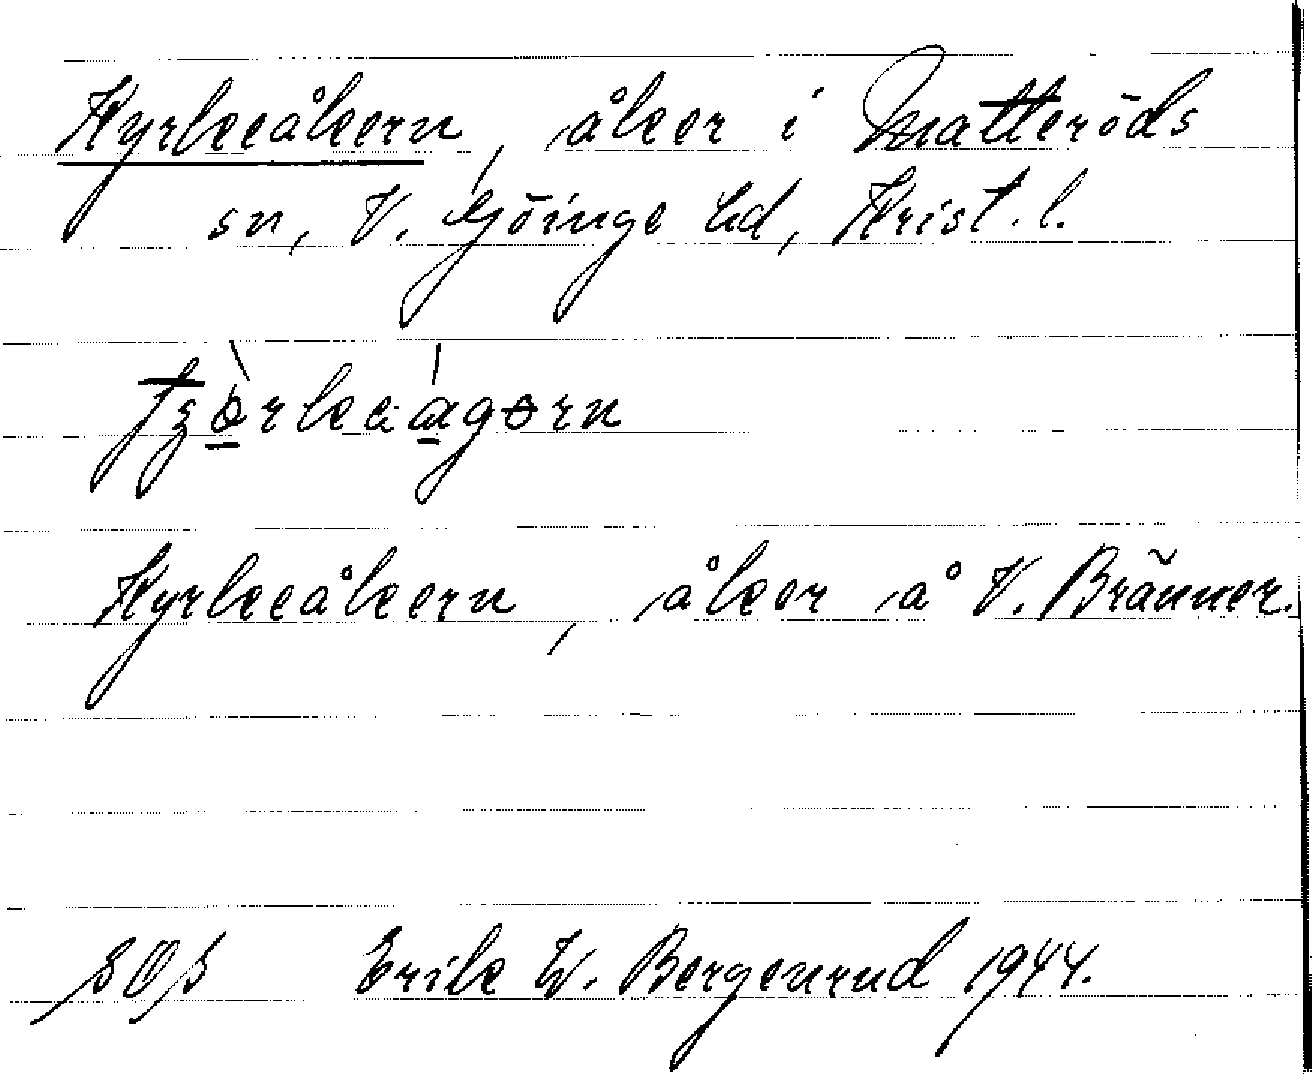 Kyrkeåkern, åker i Matteröds
sn, V. Göinge hd, Krist. l.
Kyrkeåkern, åker å V. Bränner.
SOS Erik W. Bergenrud 1944.